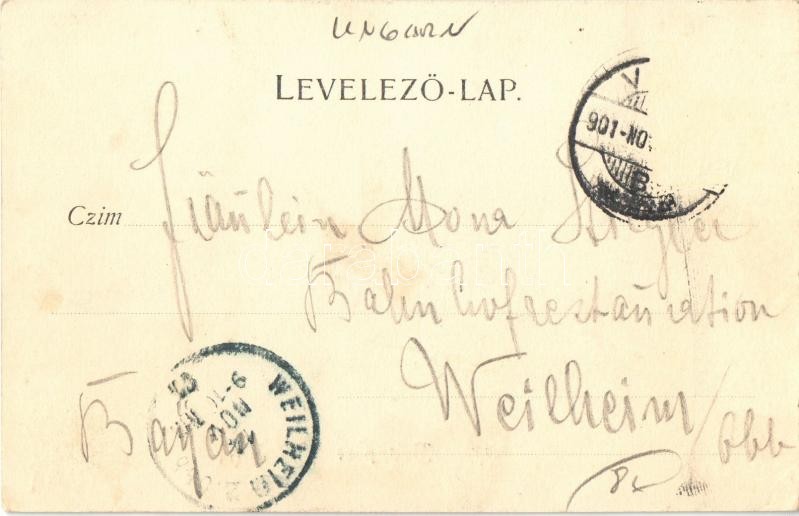 UNGARN
LEVELEZŐ-LAP.
901-NO
Czim
Fräulein Mona
Bahnhofrestauration
Weilheim /Obb
Bayern
WEILHEIM 2
NOV